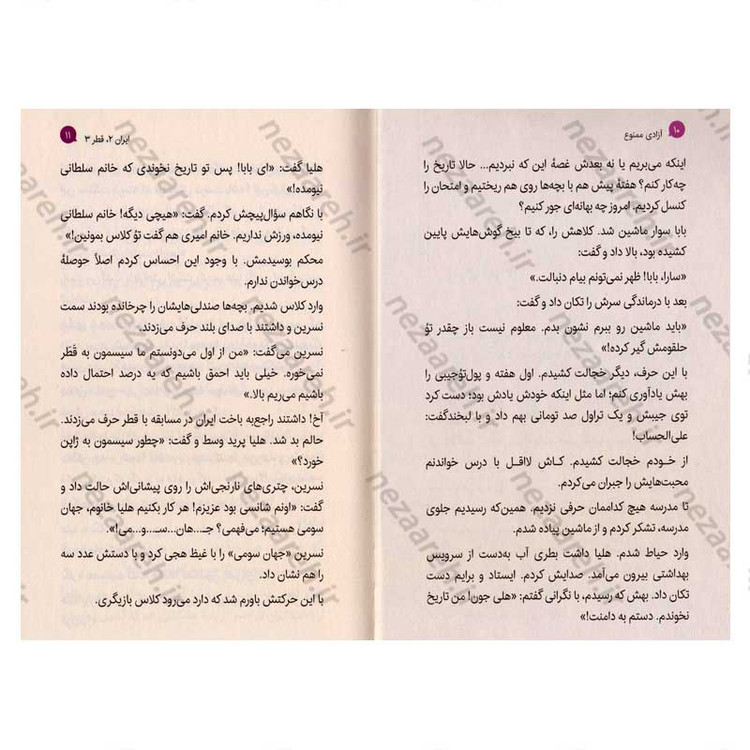 ۱۰ آزادی ممنوع
اینکه می‌بریم یا نه بعدش غصهٔ این که نبردیم... حالا تاریخ را
چه‌کار کنم؟ هفتهٔ پیش هم با بچه‌ها روی هم ریختیم و امتحان را
کنسل کردیم. امروز چه بهانه‌ای جور کنیم؟
بابا سوار ماشین شد. کلاهش را، که تا بیخ گوش‌هایش پایین
کشیده بود، بالا داد و گفت:
«سارا، بابا! ظهر نمی‌تونم بیام دنبالت.»
بعد با درماندگی سرش را تکان داد و گفت:
«باید ماشین رو ببرم نشون بدم. معلوم نیست باز چقدر تؤ
حلقومش گیر کرده!»
با این حرف، دیگر خجالت کشیدم. اول هفته و پول‌توجیبی را
بهش یادآوری کنم؛ اما مثل اینکه خودش یادش بود؛ دست کرد
توی جیبش و یک تراول صد تومانی بهم داد و با لبخندگفت:
علی‌الحساب!
از خودم خجالت کشیدم. کاش لااقل با درس خواندنم
محبت‌هایش را جبران می‌کردم.
تا مدرسه هیچ کداممان حرفی نزدیم. همین‌که رسیدیم جلوی
مدرسه، تشکر کردم و از ماشین پیاده شدم.
وارد حیاط شدم. هلیا داشت بطری آب به‌دست از سرویس
بهداشتی بیرون می‌آمد. صدایش کردم. ایستاد و برایم دست
تکان داد. بهش که رسیدم، با نگرانی گفتم: «هلی جون! من تاریخ
نخوندم. دستم به دامنت!»
ایران ۲، قطر ۳ ۱۱
هلیا گفت: «ای بابا! پس تو تاریخ نخوندی که خانم سلطانی
نیومده!»
با نگاهم سؤال‌پیچش کردم. گفت: «هیچی دیگه! خانم سلطانی
نیومده، ورزش نداریم. خانم امیری هم گفت تؤ کلاس بمونین!»
محکم بوسیدمش. با وجود این احساس کردم اصلاً حوصلهٔ
درس‌خواندن ندارم.
وارد کلاس شدیم. بچه‌ها صندلی‌هایشان را چرخانده بودند سمت
نسرین و داشتند با صدای بلند حرف می‌زدند.
نسرین می‌گفت: «من از اول می‌دونستم ما سیسمون به قَطَر
نمی‌خوره. خیلی باید احمق باشیم که یه درصد احتمال داده
باشیم می‌ریم بالا.»
آخ! داشتند راجع‌به باخت ایران در مسابقه با قطر حرف می‌زدند.
حالم بد شد. هلیا پرید وسط و گفت: «چطور سیسمون به ژاپن
خورد؟»
نسرین، چتری‌های نارنجی‌اش را روی پیشانی‌اش حالت داد و
گفت: «اونم شانسی بود عزیزم! هر کار بکنیم هلیا خانوم، جهان
سومی هستیم؛ می‌فهمی؟ جـ...هان...سـ...و...می!».
نسرین «جهان سومی» را با غیظ هجی کرد و با دستش عدد سه
را هم نشان داد.
با این حرکتش باورم شد که دارد می‌رود کلاس بازیگری.
nezaareh.ir